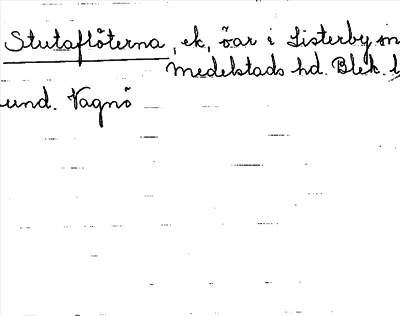 Stutaflöterna, ek, öar i Listerby sn
Medelstads hd. Blek. l
und. Vagnö